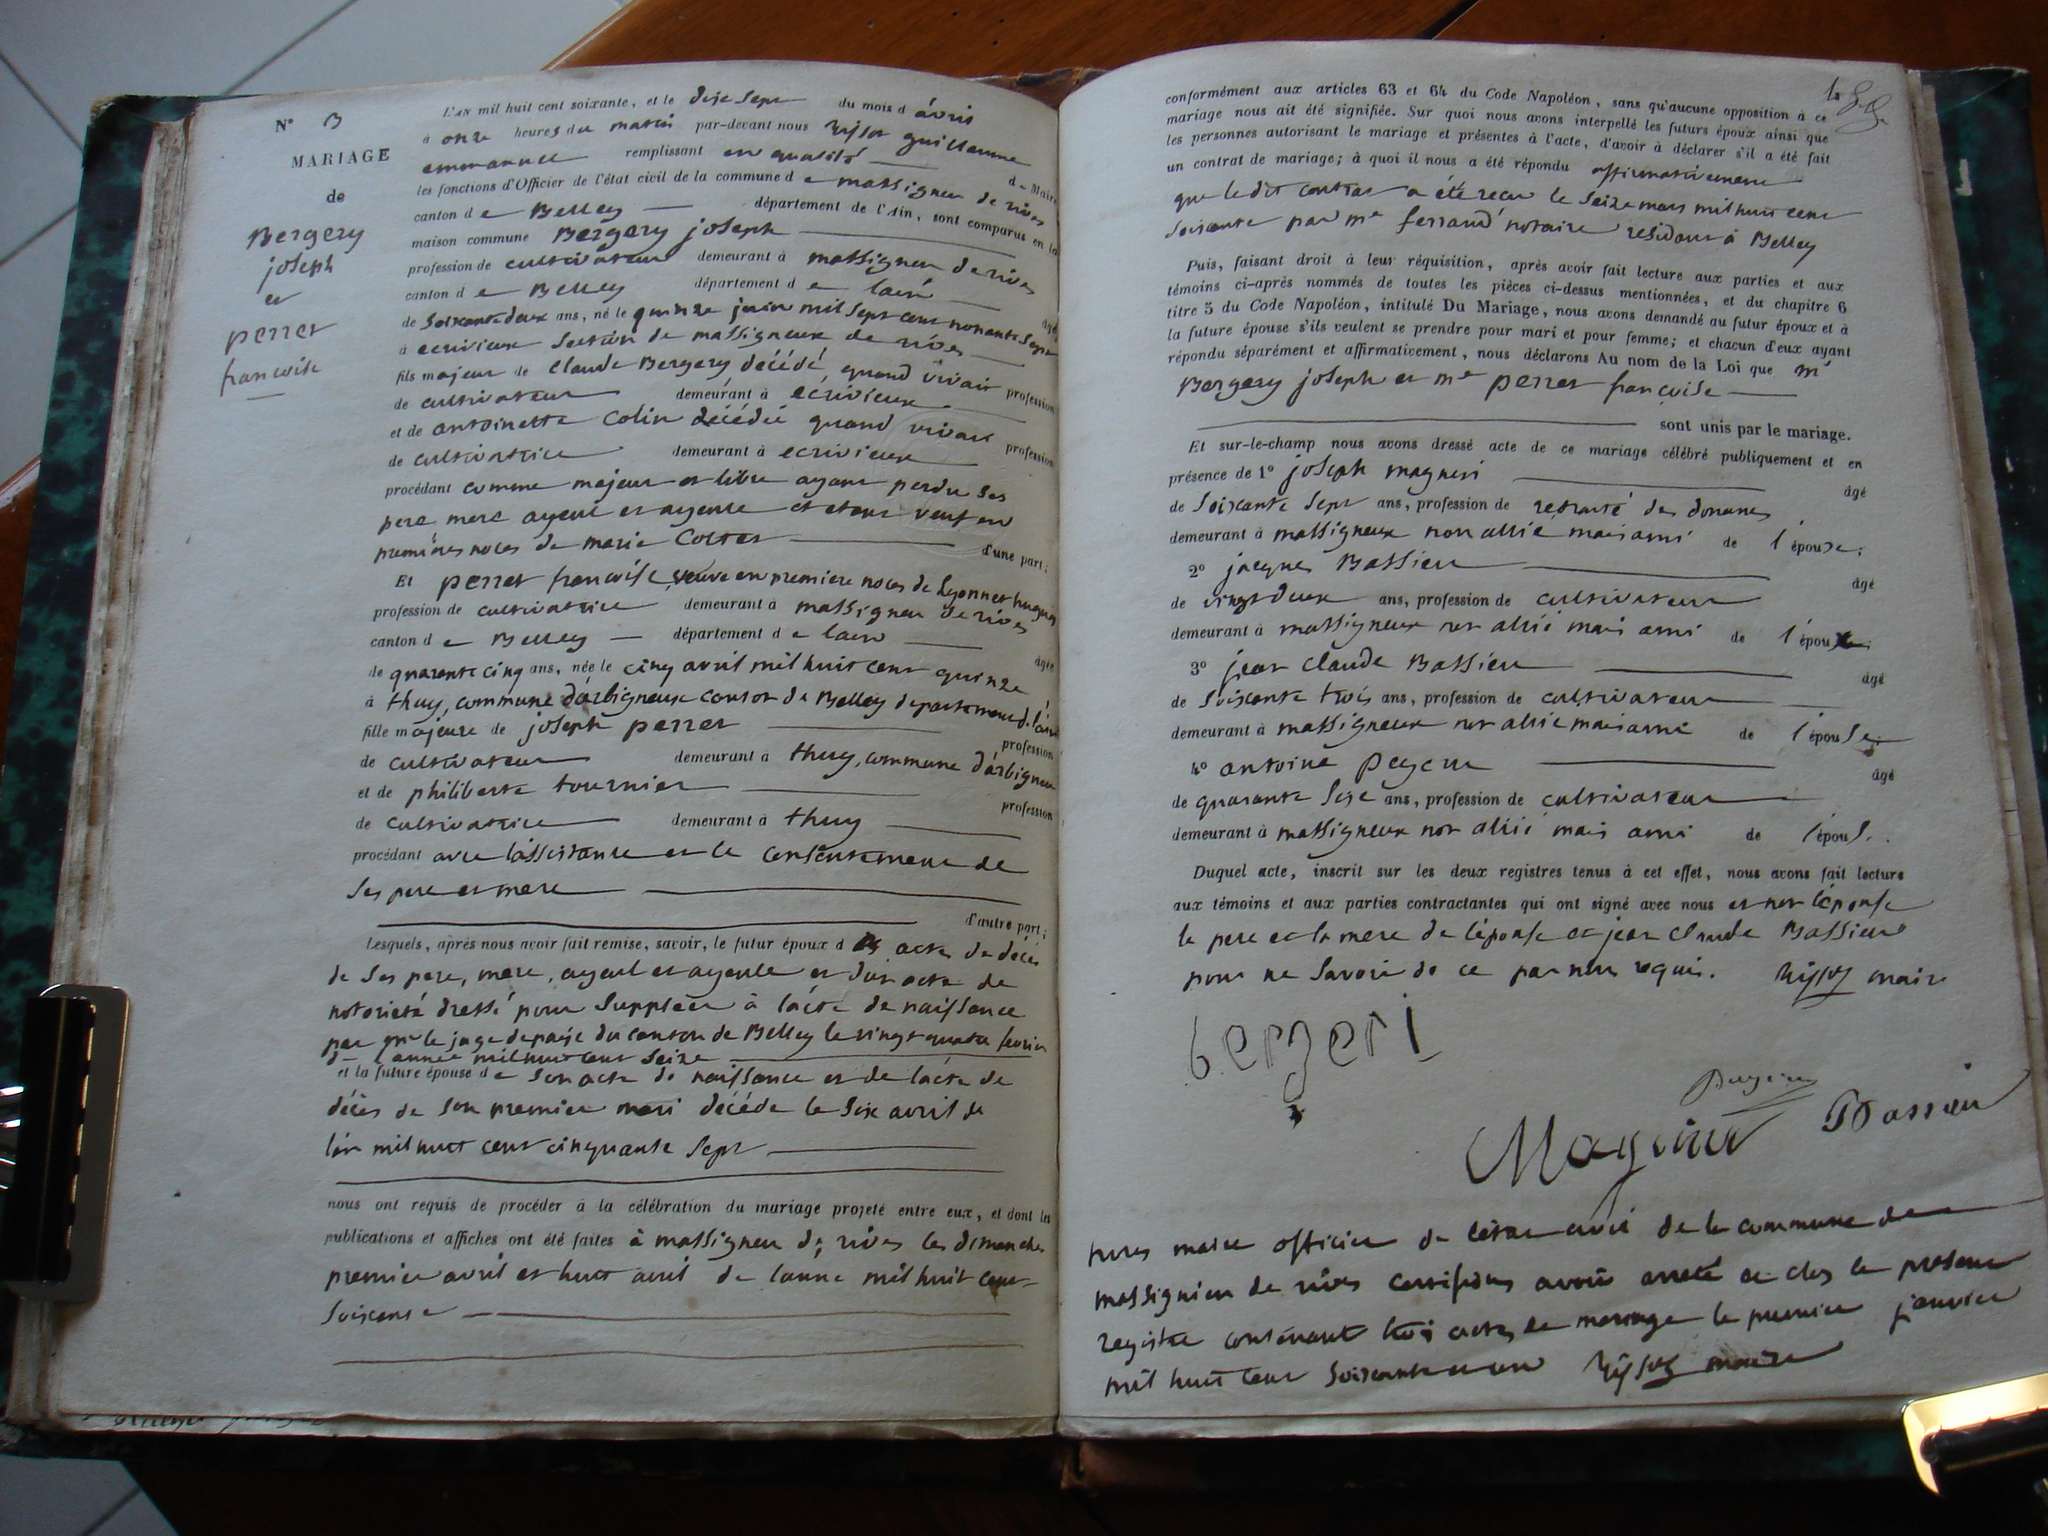 N° 3
MARIAGE
de
Bergery
joseph
et
perret
francoise
L'AN mil huit cent soixante, et le dixe sept du mois d avril
à onze heures du matin par-devant nous guillaume
emmanuel remplissant en qualité de Maire
les fonctions d'Officier de l'état civil de la commune d e massigneu de rives
canton d e Belley département de l'Ain, sont comparus en la
maison commune Bergery joseph
profession de cultivateur demeurant à massigneu de rives
canton d e Belley département d e lain âgé
de soixante deux ans, né le quinze juin mil sept cent nonante sept
à ecrivieux section de massigneux de rives
fils majeur de claude Bergery décédé, quand vivait profession
de cultivateur demeurant à écrivieux
et de antoinette Colin décédée quand vivait profession
de cultivatrice demeurant à ecrivieux
procédant comme majeur et libre ayant perdu ses
pere mere ayeul et ayeule et etant veuf en
premières noces de marie d'une part;
Et perret francoise, veuve en premiere noces de Lyonnet hugues
profession de cultivatrice demeurant à massigneu de rives
canton d e Belley département d e lain âgée
de quarente cinq ans, née le cinq avril mil huit cent quinze
à thuy, commune d'arbigneux canton de Belley departement de l'ain
fille majeure de joseph perret profession
de cultivateur demeurant à thuy, commune d'arbigneu
et de philiberte tournier profession
de cultivatrice demeurant à thuy
procédant avec lassistance et le consentement de
ses pere et mere
d'autre part;
Lesquels, après nous avoir fait remise, savoir, le futur époux d es actes de décès
de ses pere, mere, ayeul et ayeule et d'un acte de
notorieté dressé pour suppléer à lacte de naissance
par mr le juge de paix du canton de Belley le vingt quatre fevrier
de l'année mil huit cent seize
et la future épouse d e son acte de naissance et de lacte de
décès de son premier mari décédé le six avril de
l'an mil huit cent cinquante sept
nous ont requis de procéder à la célébration du mariage projeté entre eux, et dont les
publications et affiches ont été faites à massigneu de rives les dimanches
premier avril et huit avril de lanne mil huit cent
soixante
conformément aux articles 63 et 64 du Code Napoléon, sans qu'aucune opposition à ce
mariage nous ait été signifiée. Sur quoi nous avons interpellé les futurs époux ainsi que
les personnes autorisant le mariage et présentes à l'acte, d'avoir à déclarer s'il a été fait
un contrat de mariage; à quoi il nous a été répondu affirmativement
que le dit contrat a été recu le seize mars mil huit cent
soixante par me ferrand notaire residant à Belley
Puis, faisant droit à leur réquisition, après avoir fait lecture aux parties et aux
témoins ci-après nommés de toutes les pièces ci-dessus mentionnées, et du chapitre 6
titre 5 du Code Napoléon, intitulé Du Mariage, nous avons demandé au futur époux et à
la future épouse s'ils veulent se prendre pour mari et pour femme; et chacun d'eux ayant
répondu séparément et affirmativement, nous déclarons Au nom de la Loi que mr
Bergery joseph et me perret françoise
sont unis par le mariage.
Et sur-le-champ nous avons dressé acte de ce mariage célébré publiquement et en
présence de 1° joseph magnin âgé
de soixante sept ans, profession de retraité des douanes
demeurant à massigneux non allié mais ami de l'épouxe;
2° jacques Bassieu âgé
de vingt deux ans, profession de cultivateur
demeurant à massigneux non allié mais ami de l'époux
3° jean claude Bassieu âgé
de soixante trois ans, profession de cultivateur
demeurant à massigneux non allié mais ami de l'épouse
4° antoine peyeur âgé
de quarante sixe ans, profession de cultivateur
demeurant à massigneux non allié mais ami de l'épous.
Duquel acte, inscrit sur les deux registres tenus à cet effet, nous avons fait lecture
aux témoins et aux parties contractantes qui ont signé avec nous et non l'épouse
le pere et la mere de l'épouse et jean claude Bassieu
pour ne savoir de ce par nous requis. maire
bergeri
Magnin Bassieu
nous maire officier de l'état civil de la commune de
massignieu de rives certifions avoir arreté et clos le présent
registre contenant trois actes de mariage le premier janvier
mil huit cent soixante et un maire